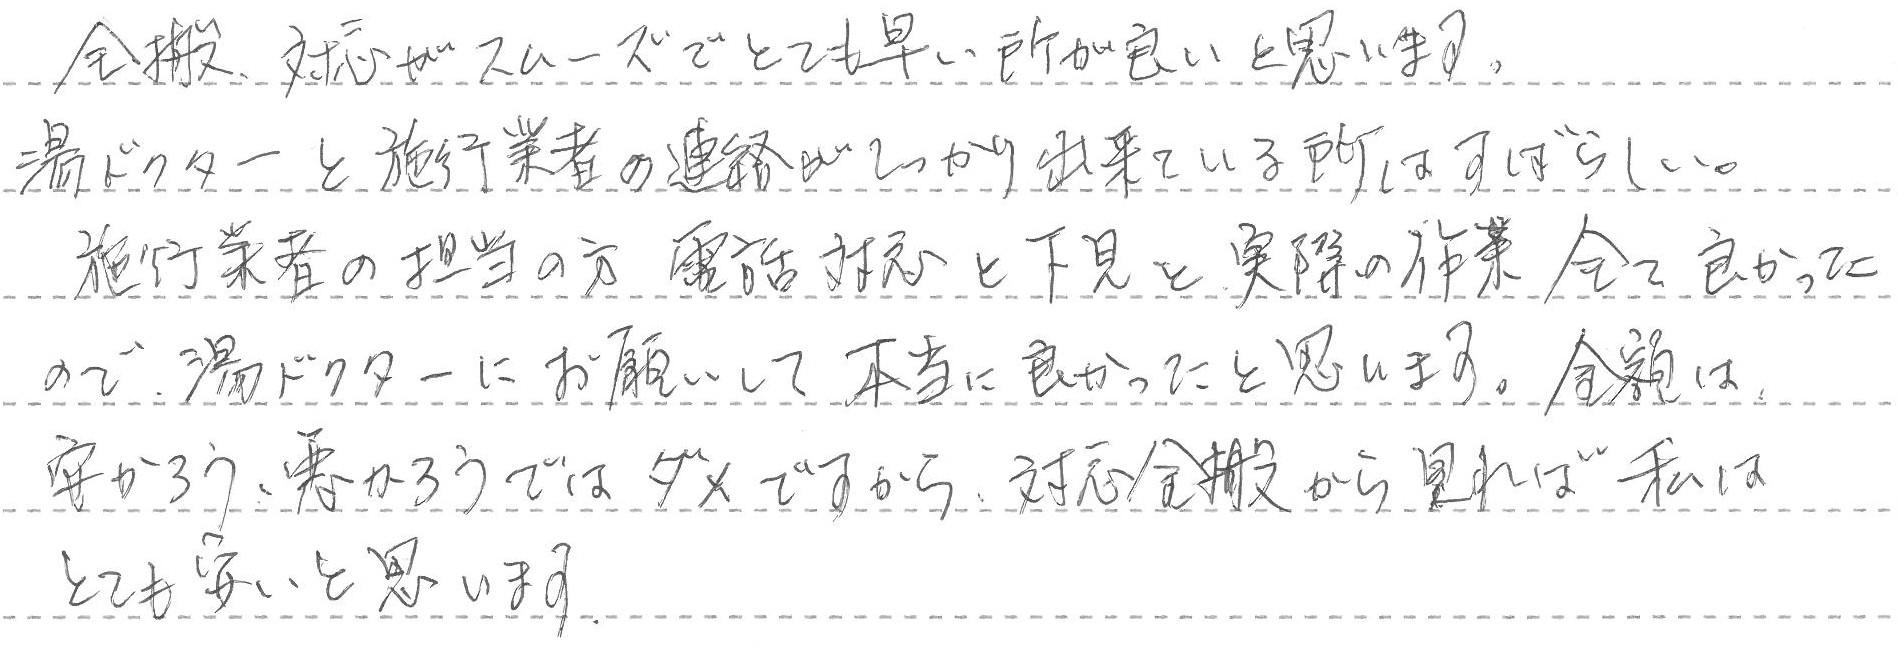 全搬、対応がスムーズでとても早い所が良いと思います。
湯ドクターと施行業者の連絡がしっかり出来ている所はすばらしい。
施行業者の担当の方 電話対応と下見と実際の作業 全て良かった
ので、湯ドクターにお願いして本当に良かったと思います。金額は、
安かろう、悪かろうではダメですから、対応全搬から見れば私は
とても安いと思います.